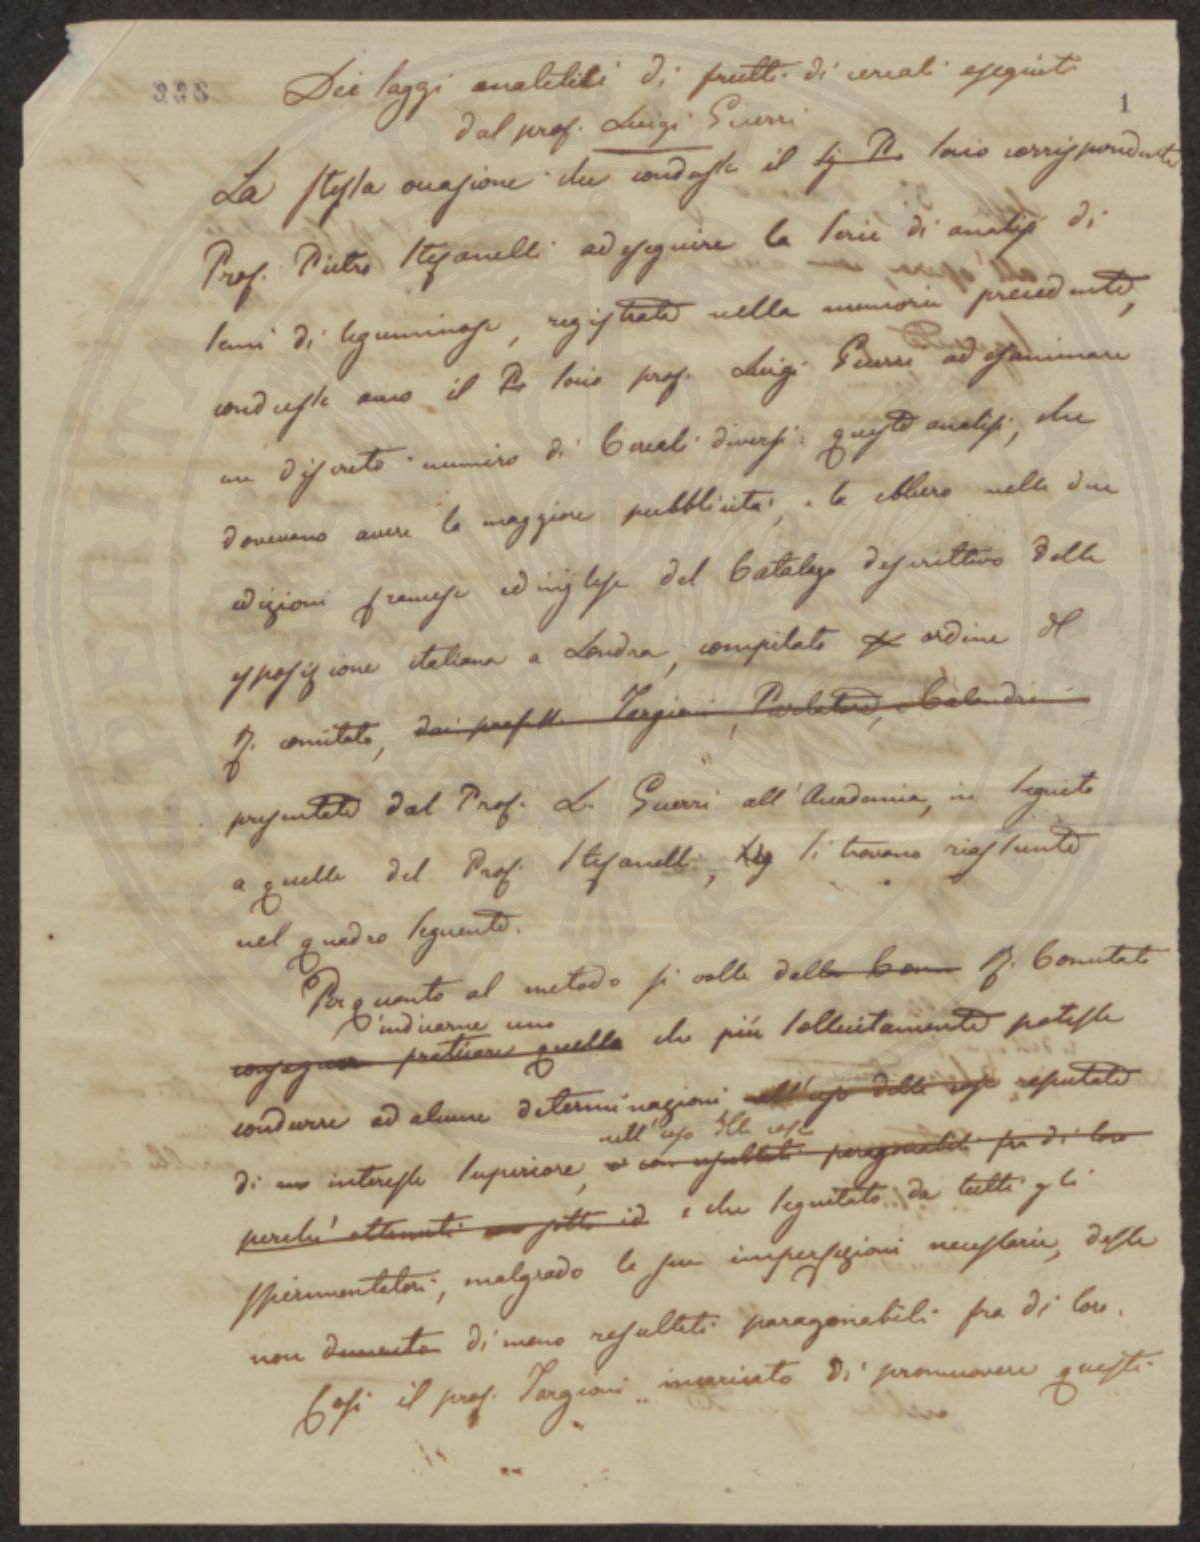 Dei saggi analitici di frutti di cereali eseguiti
1
dal prof. Luigi Guerri
La stessa occasione che condusse il Sig. Pr. socio corrispondente
Prof. Pietro Stefanelli ad eseguire la serie di analisi di
semi di leguminose, registrate nella memoria precedente,
condusse anco il Pr. socio prof. Luigi Guerri ad esaminare
un discreto numero di Cereali diversi: queste analisi, che
dovevano avere la maggiore pubblicità, la ebbero nelle due
edizioni francese ed inglese del Catalogo descrittivo della
esposizione italiana a Londra, compilato ordine del
R. comitato, dai profess. Targioni, Parlatore, e Calandrini
presentate dal Prof. L. Guerri all'Accademia, in seguito
a quelle del Prof. Stefanelli, si trovano riassunte
nel quadro seguente.
Per quanto al metodo si volle dalla Com R. Comitato
indicarne uno
conseguare praticare quella che più sollecitamente potesse
condurre ad alcune determinazioni all'uso delle cose reputate
nell'uso delle cose
di un interesse superiore, e con resultati paragonabili fra di loro
perchè ottenuti sotto id e che seguitato da tutti gli
sperimentatori, malgrado le sue imperfezioni necessarie, desse
non dimeno resultati paragonabili fra di loro.
Così il prof. Targioni incaricato di promuovere questi